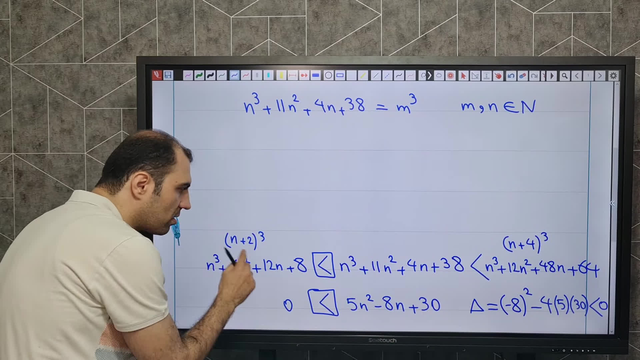 n³ + 11n² + 4n + 38 = m³ m, n ∈ N
(n+2)³ (n+4)³
n³ + + 12n + 8 < n³ + 11n² + 4n + 38 < n³ + 12n² + 48n + 64
0 < 5n² - 8n + 30 Δ = (-8)² - 4(5)(30) < 0